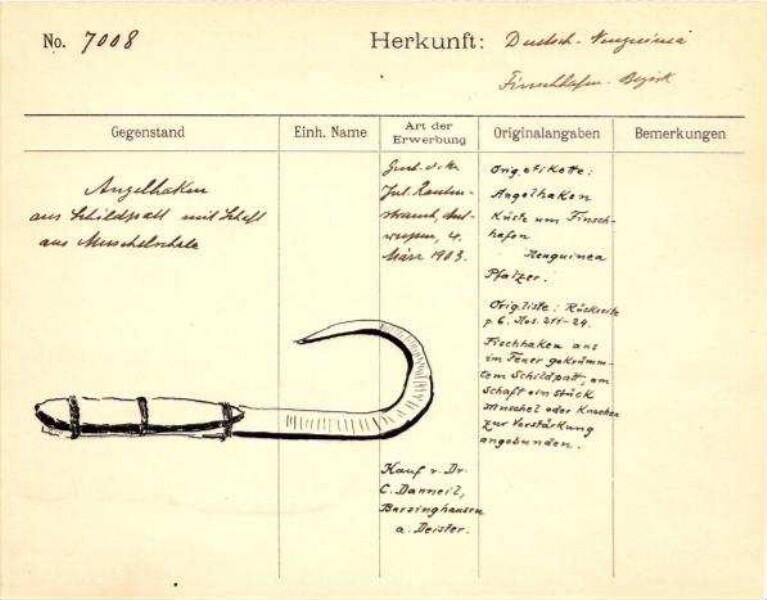 No. 7008
Herkunft: Deutsch-Neuguinea
Finschhafen-Bezirk
Gegenstand
Einh. Name
Art der
Erwerbung
Originalangaben
Bemerkungen
Angelhaken
aus Schildpatt mit Schaft
aus Muschelschale
Jul. Rauten-
strauch, Ant-
werpen, 4.
März 1903.
Kauf v. Dr.
C. Danneil,
Barsinghausen
a. Deister.
Orig. etikette:
Angelhaken
Küste um Finsch-
hafen
Neuguinea
Pfalzer.
Orig. liste: Rückseite
p. 6. Nos. 211-24.
Fischhaken aus
im Feuer gekrümm-
tem Schildpatt, am
Schaft ein Stück
Muschel oder Knochen
zur Verstärkung
angebunden.